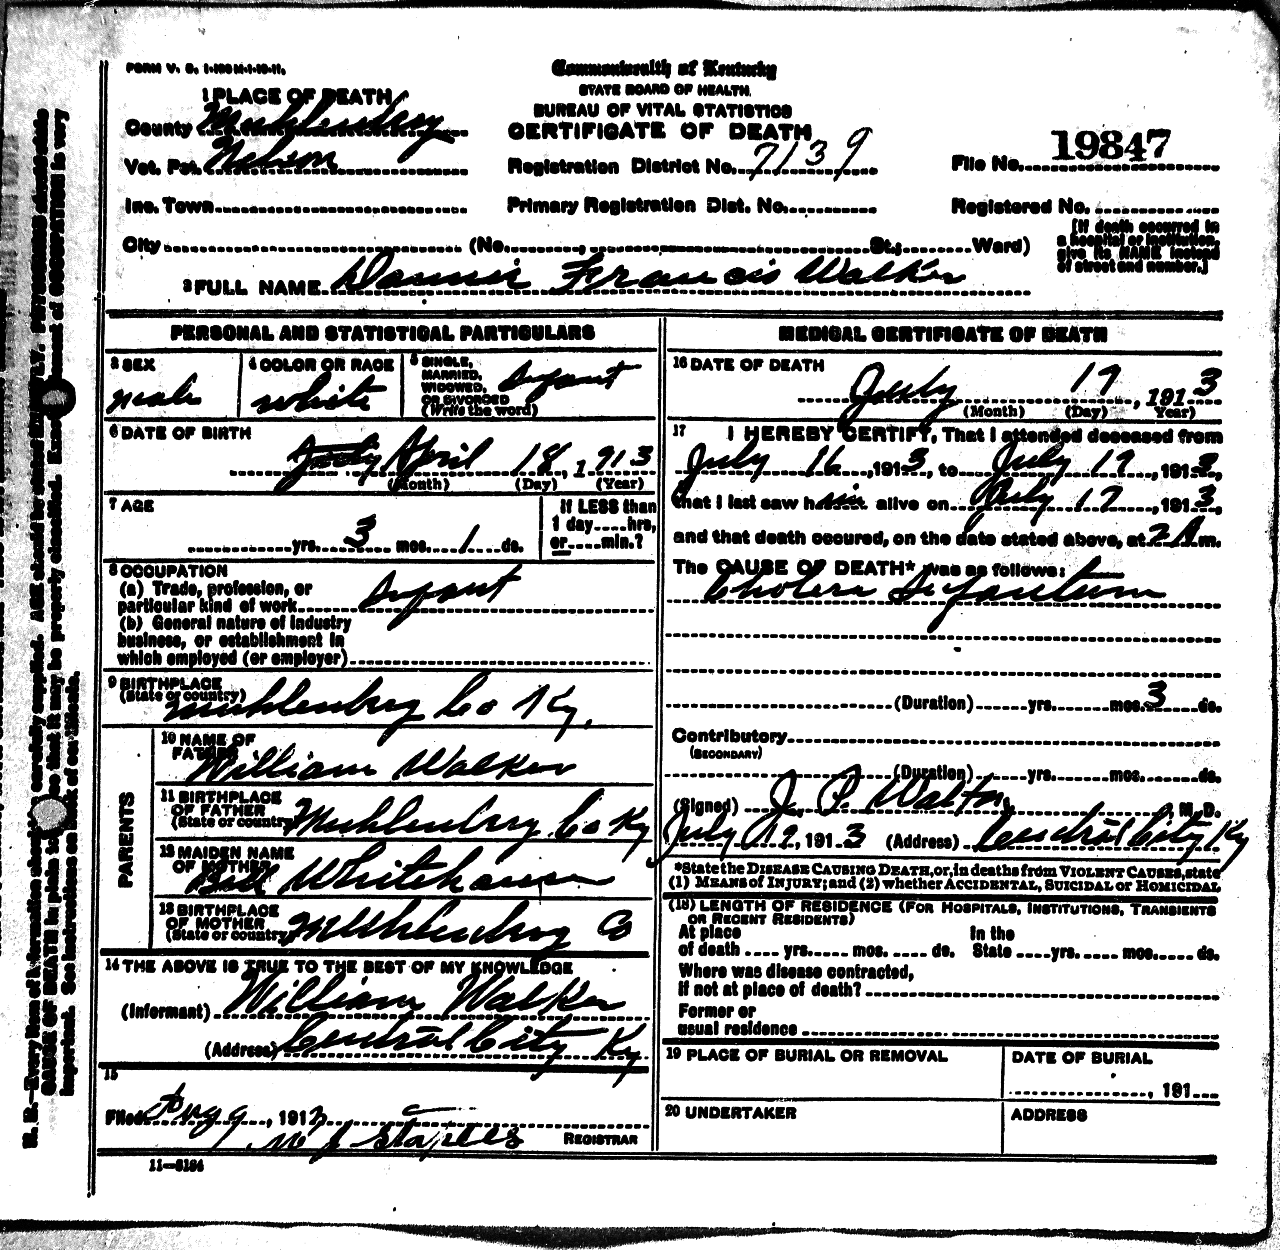 FORM V. S. 1-100 M-1-10-11.
Commonwealth of Kentucky
STATE BOARD OF HEALTH.
BUREAU OF VITAL STATISTICS
CERTIFICATE OF DEATH
1 PLACE OF DEATH
County Muhlenberg
Vot. Pct. Nelson
Registration District No. 7139
File No. 19847
Inc. Town
Primary Registration Dist. No.
Registered No.
City (No. , St.; Ward)
[If death occurred in
a hospital or institution,
give its NAME instead
of street and number.]
2 FULL NAME Francis Walker
PERSONAL AND STATISTICAL PARTICULARS
3 SEX
male
4 COLOR OR RACE
white
5 SINGLE,
MARRIED,
WIDOWED,
OR DIVORCED
(Write the word)
Infant
6 DATE OF BIRTH
July April 18, 1913
(Month) (Day) (Year)
7 AGE
yrs. 3 mos. 1 ds.
If LESS than
1 day....hrs,
or....min.?
8 OCCUPATION
(a) Trade, profession, or
particular kind of work Infant
(b) General nature of industry
business, or establishment in
which employed (or employer)
9 BIRTHPLACE
(State or country)
Muhlenberg Co Ky.
PARENTS
10 NAME OF
FATHER William Walker
11 BIRTHPLACE
OF FATHER
(State or country) Muhlenberg Co Ky
12 MAIDEN NAME
OF MOTHER Bell Whitehouse
13 BIRTHPLACE
OF MOTHER
(State or country) Muhlenberg Co
14 THE ABOVE IS TRUE TO THE BEST OF MY KNOWLEDGE
(Informant) William Walker
(Address) Central City Ky
15
Filed Aug 9, 1913
Staples REGISTRAR
11—5184
MEDICAL CERTIFICATE OF DEATH
16 DATE OF DEATH
July 19, 1913
(Month) (Day) Year)
17 I HEREBY CERTIFY, That I attended deceased from
July 16, 1913, to July 19, 1913,
that I last saw him alive on July 17, 1913,
and that death occured, on the date stated above, at 2 A m.
The CAUSE OF DEATH* was as follows:
Cholera Infantum
(Duration) yrs. mos. 3 ds.
Contributory
(SECONDARY)
(Duration) yrs. mos. ds.
(Signed) J. P. Walton, M. D.
July 19, 1913 (Address) Central City Ky
*State the DISEASE CAUSING DEATH, or, in deaths from VIOLENT CAUSES, state
(1) MEANS of INJURY; and (2) whether ACCIDENTAL, SUICIDAL or HOMICIDAL
(18) LENGTH OF RESIDENCE (FOR HOSPITALS, INSTITUTIONS, TRANSIENTS
OR RECENT RESIDENTS)
At place
of death .... yrs..... mos. .... ds.
In the
State ....yrs..... mos..... ds.
Where was disease contracted,
if not at place of death?
Former or
usual residence
19 PLACE OF BURIAL OR REMOVAL
DATE OF BURIAL
, 191
20 UNDERTAKER
ADDRESS
N. B.—Every item of information should be carefully supplied. AGE should be stated EXACTLY. PHYSICIANS should state
CAUSE OF DEATH in plain terms so that it may be properly classified. Exact statement of OCCUPATION is very
important. See instructions on back of certificate.